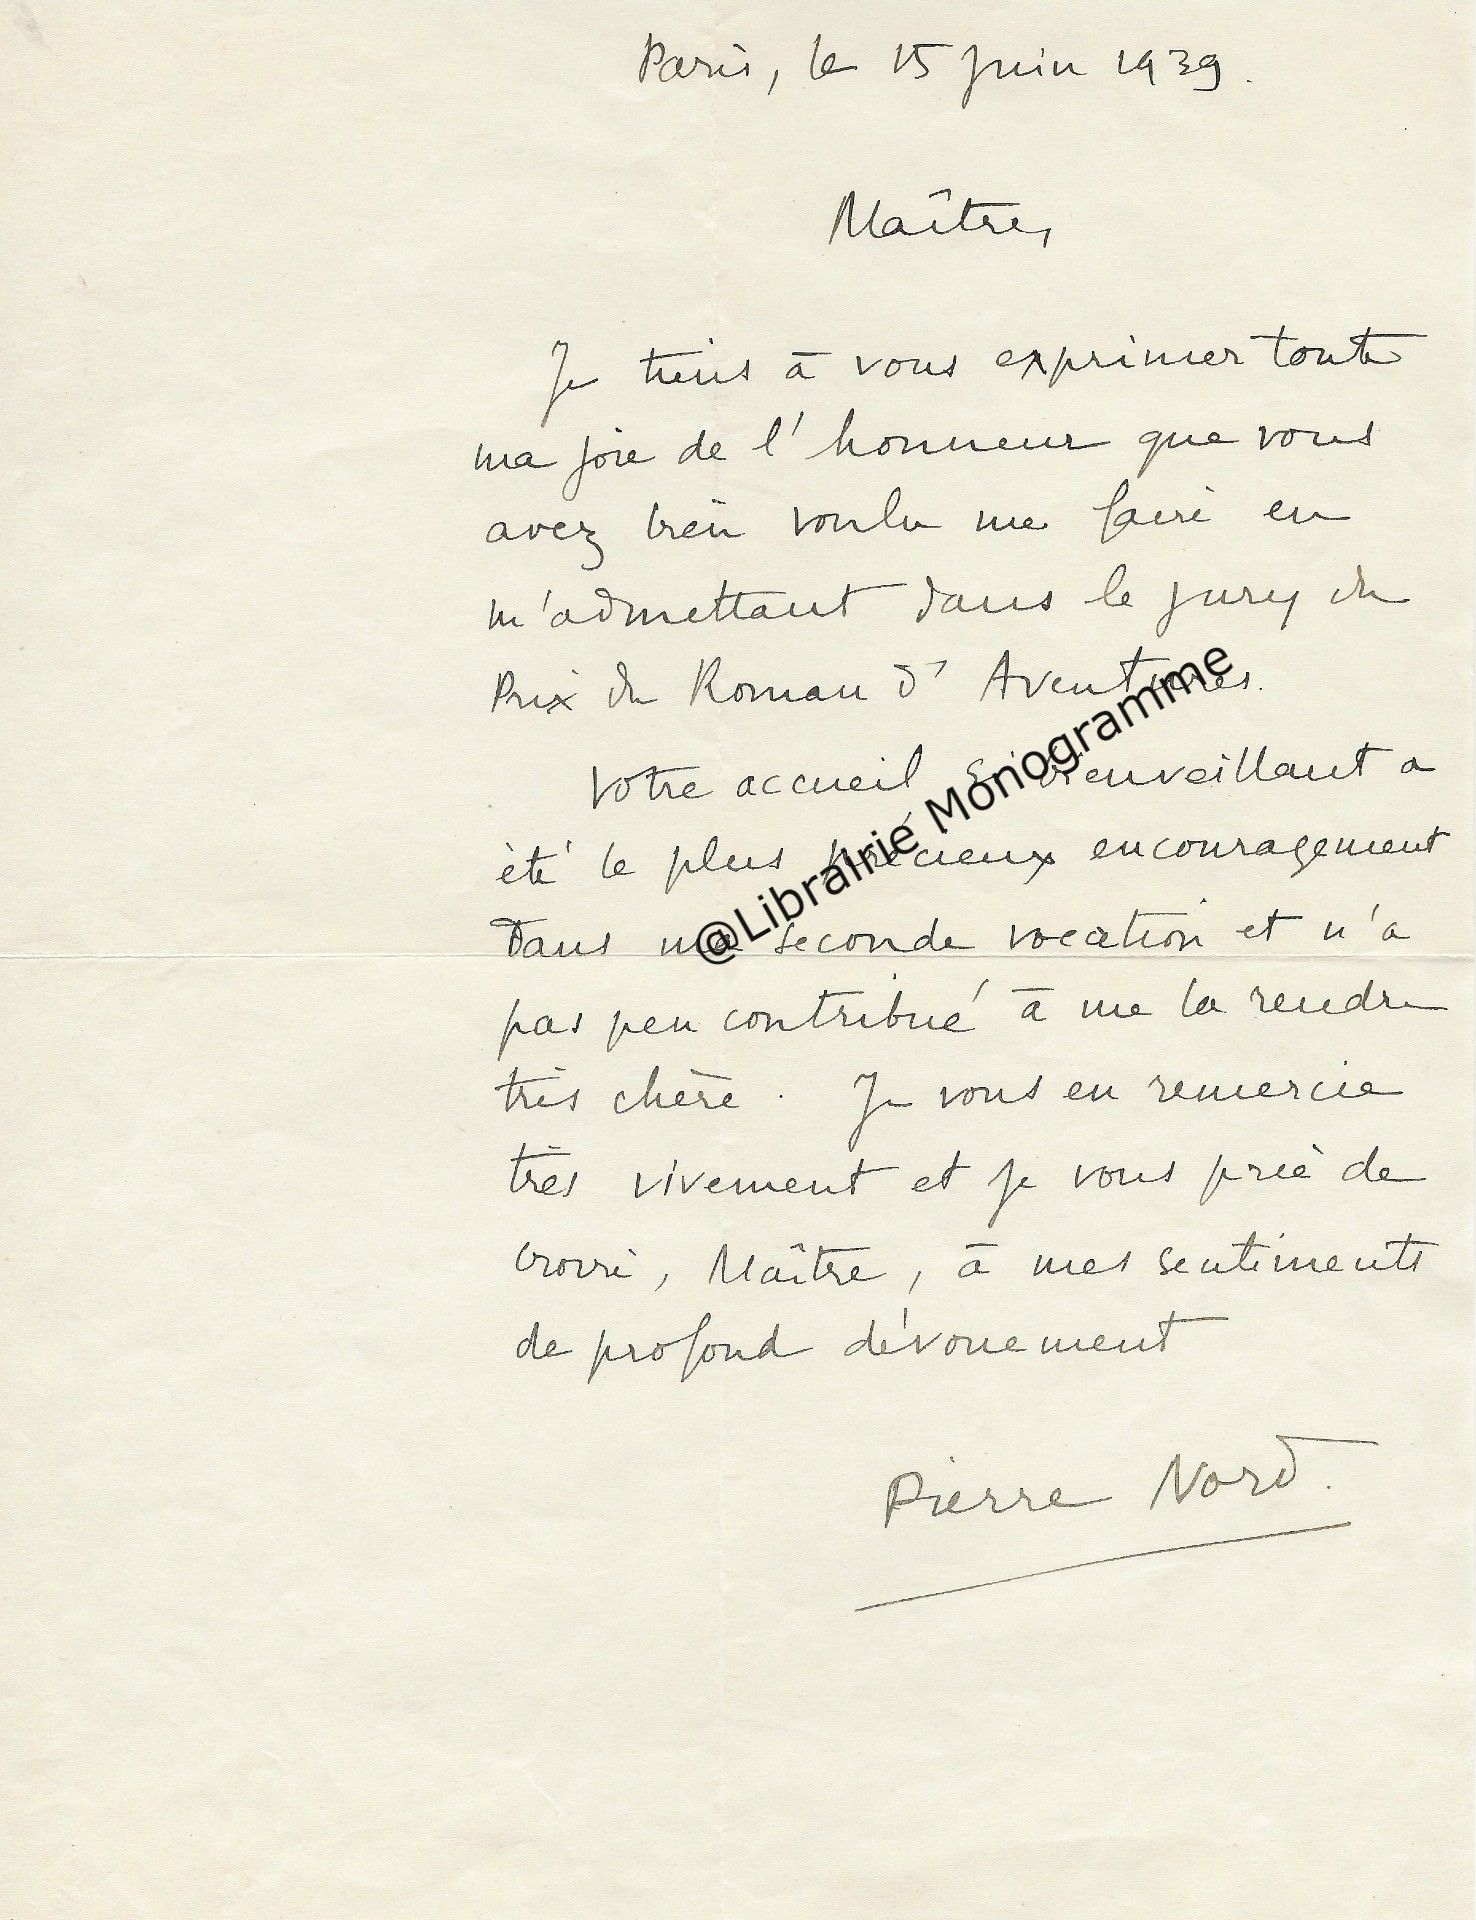 Paris, le 15 juin 1939.
Maître,
Je tiens à vous exprimer toute
ma joie de l'honneur que vous
avez bien voulu me faire en
m'admettant dans le jury du
Prix du Roman d'Aventures.
Votre accueil si bienveillant a
été le plus précieux encouragement
dans ma seconde vocation et n'a
pas peu contribué à me la rendre
très chère. Je vous en remercie
très vivement et je vous prie de
croire, Maître, à mes sentiments
de profond dévouement
Pierre Nord.
@Librairie Monogramme